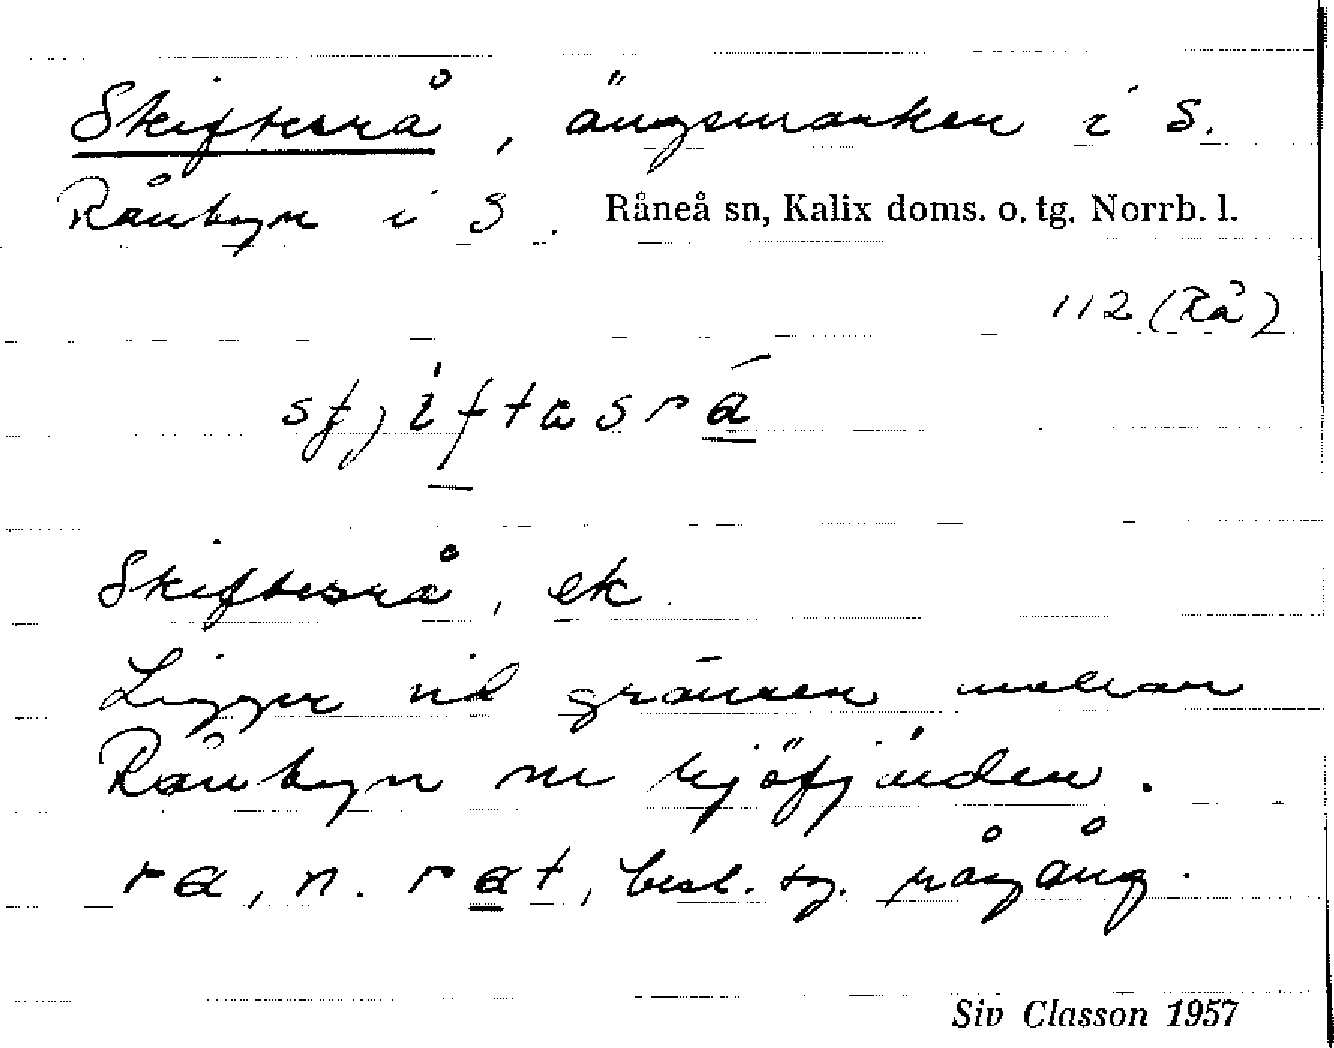 Skiftesrå, ängsmarken i S.
Rånbyn i S. Råneå sn, Kalix doms. o. tg. Norrb. l.
112 (Rå)
Skiftesrå, ek.
Ligger vid gränsen mellan
Rånbyn
ra, n. rat, besl. rågång.
Siv Classon 1957